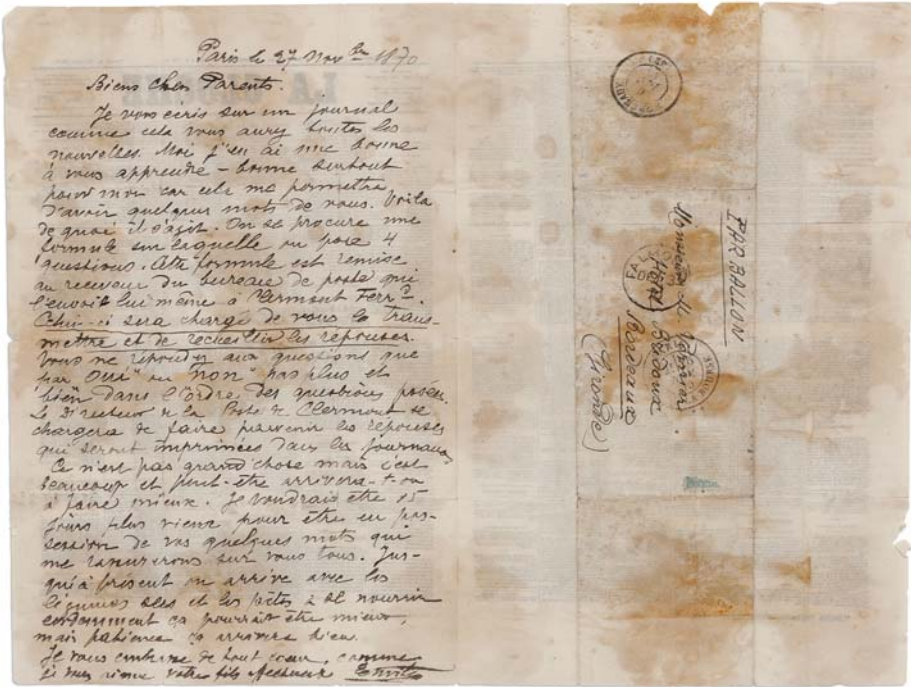 Paris le 27 Nov bre 1870
Biens chers Parents.
Je vous écris sur un journal
comme cela vous aurez toutes les
nouvelles. Moi j'en ai une bonne
à vous apprendre - bonne surtout
pour moi car cela me permettra
d'avoir quelques mots de vous. Voila
de quoi il s'agit. On se procure une
formule sur laquelle on pose 4
questions. Cette formule est remise
au receveur du bureau de poste qui
l'envoit lui même à Clermont Ferrd.
Celui-ci sera chargé de vous la trans-
mettre et de recueillir les réponses.
Vous ne répondez aux questions que
par "Oui" ou "Non" pas plus et
bien dans l'ordre des questions posées.
Le Directeur de la Poste de Clermont se
chargera de faire parvenir les réponses
qui seront imprimées dans les journaux.
Ce n'est pas grand chose mais c'est
beaucoup et peut-être arrivera-t-on
à faire mieux. Je voudrais être 15
jours plus vieux pour être en pos-
session de vos quelques mots qui
me rassureront sur vous tous. Jus-
qu'à présent on arrive avec les
légumes secs et les pâtes à se nourrir
ça pourrait être mieux,
mais patience ça arrivera bien.
Je vous embrasse de tout coeur, comme
je vous aime votre fils affectueux
PAR BALLON
Monsieur M.
Bordeaux
(Gironde)